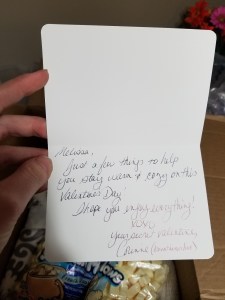 Melissa,
Just a few things to help
you stay warm & cozy on this
Valentine's Day!
I hope you enjoy everything!
your secret valentine,